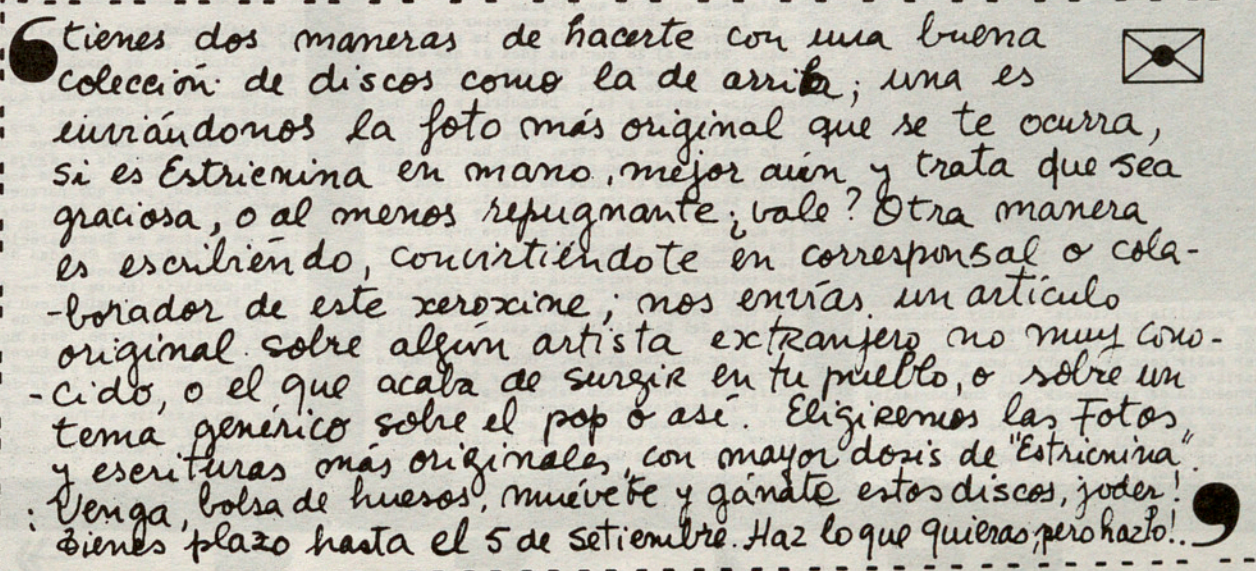 tienes dos maneras de hacerte con una buena
colección de discos como la de arriba; una es
enviándonos la foto más original que se te ocurra,
si es Estricnina en mano, mejor aún y trata que sea
graciosa, o al menos repugnante ¿vale? Otra manera
es escribiendo, convirtiéndote en corresponsal o cola-
-borador de este xeroxine; nos envías un artículo
original sobre algún artista extranjero no muy cono-
-cido, o el que acaba de surgir en tu pueblo, o sobre un
tema genérico sobre el pop o así. Eligiremos las Fotos,
y escrituras más originales, con mayor dosis de "Estricnina".
¡Venga, bolsa de huesos, muévete y gánate estos discos, joder!
Tienes plazo hasta el 5 de Setiembre. Haz lo que quieras, pero hazlo!.